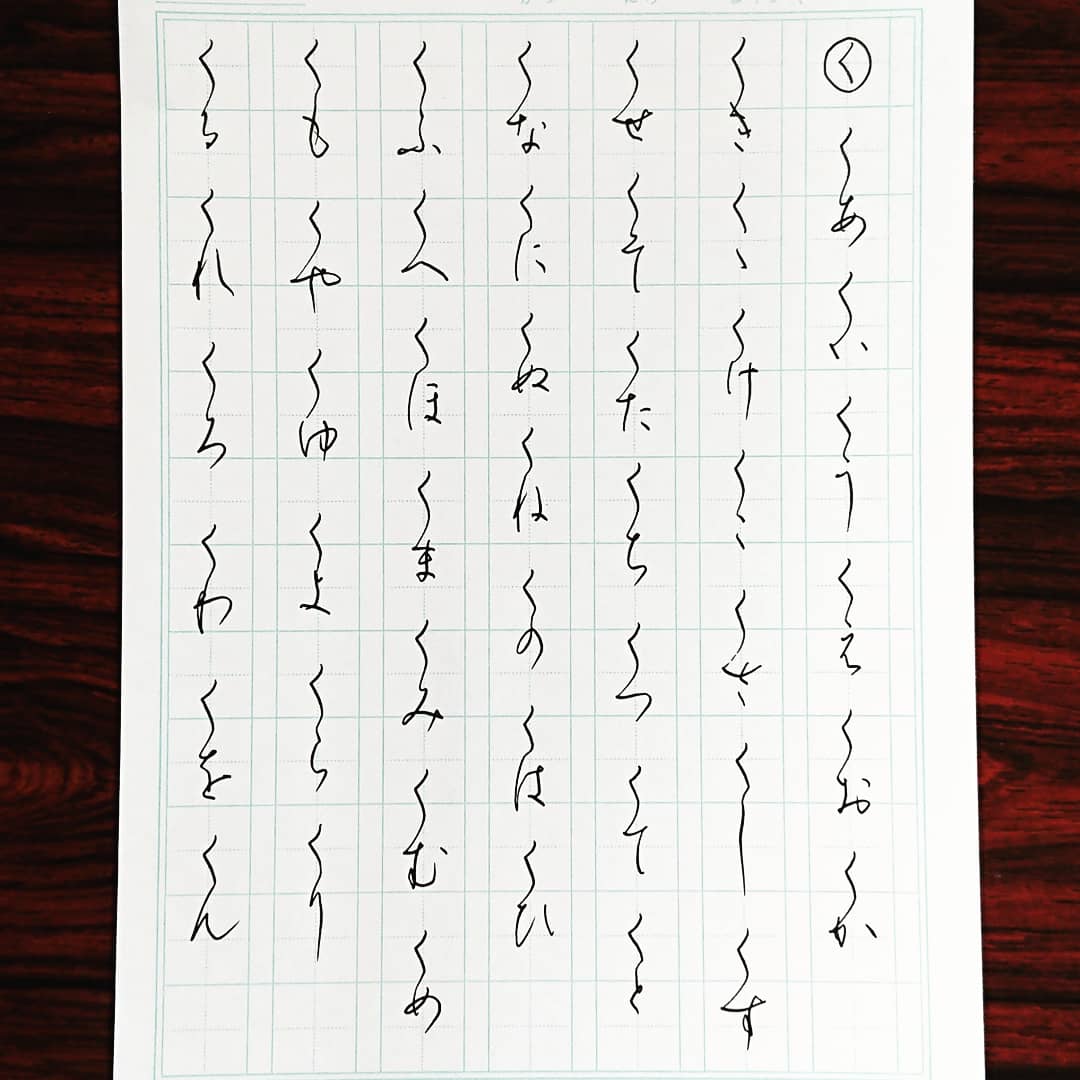 く くあ くい くう くえ くお くか
くき くゝ くけ くこ くさ くし くす
くせ くそ くた くち くつ くて くと
くな くに くぬ くね くの くは くひ
くふ くへ くほ くま くみ くむ くめ
くも くや くゆ くよ くら くり
くる くれ くろ くわ くを くん